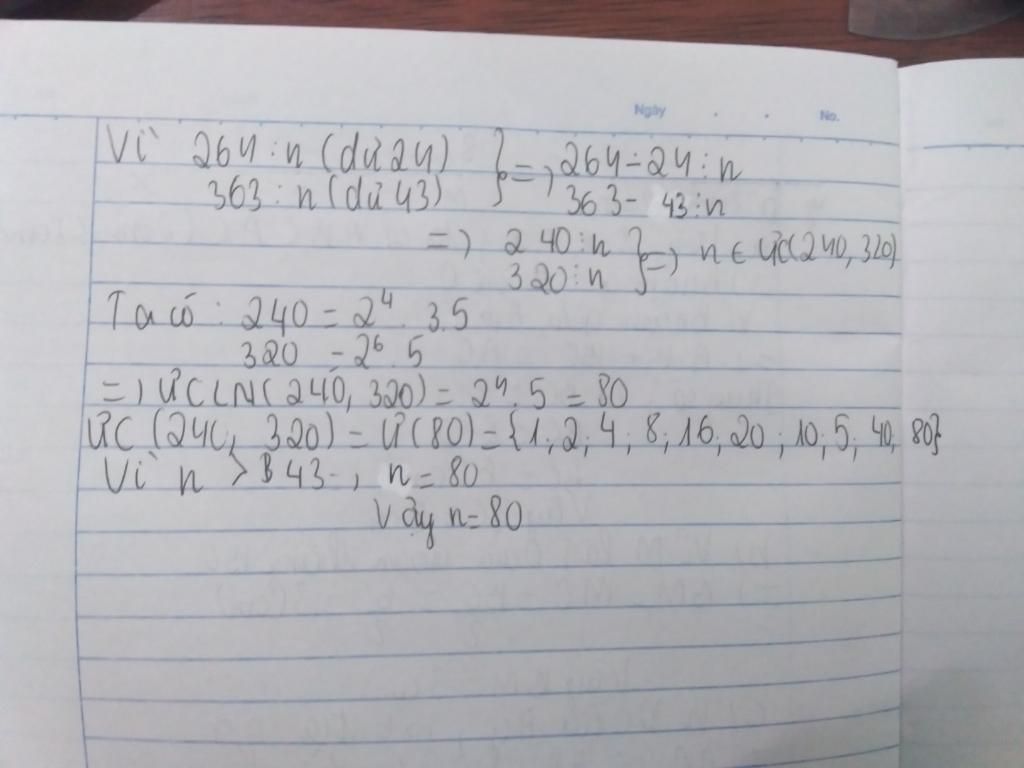 Ngày . . No.
Vì 264 : n (dư 24) } => 264 - 24 ⋮ n
363 : n (dư 43) 363 - 43 ⋮ n
=> 240 ⋮ n } => n ∈ ƯC(240, 320)
320 ⋮ n
Ta có : 240 = 2⁴ . 3.5
320 = 2⁶ . 5
=> ƯCLN(240, 320) = 2⁴ . 5 = 80
ƯC (240, 320) = Ư(80) = {1; 2; 4; 8; 16; 20; 10; 5; 40; 80}
Vì n > 43 , n = 80
Vậy n = 80